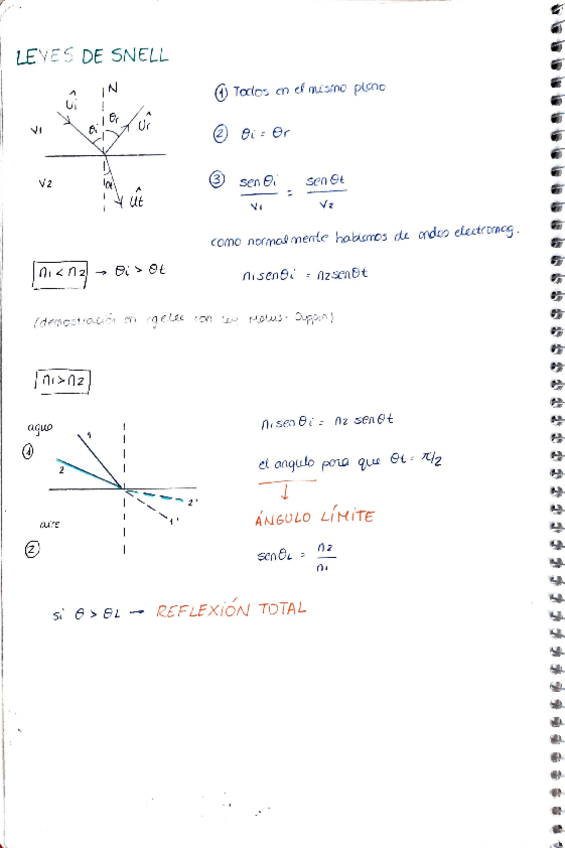 LEYES DE SNELL
N
Ûi
θi
θr
Ûr
V1
V2
Ût
① Todos en el mismo plano
② θi = θr
③ senθi / V1 = senθt / V2
como normalmente hablamos de ondas electromag.
n1 < n2 → θi > θt
n1 senθi = n2 senθt
(demostración en
n1 > n2
agua
①
1
2
2'
1'
aire
②
n1 senθi = n2 senθt
el angulo para que θt = π/2
↓
ÁNGULO LÍMITE
senθL = n2 / n1
si θ > θL → REFLEXIÓN TOTAL